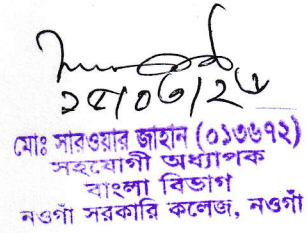 ১৫/০৬/২৬
মোঃ সারওয়ার জাহান (০১৩৬৭২)
সহযোগী অধ্যাপক
বাংলা বিভাগ
নওগাঁ সরকারি কলেজ, নওগাঁ